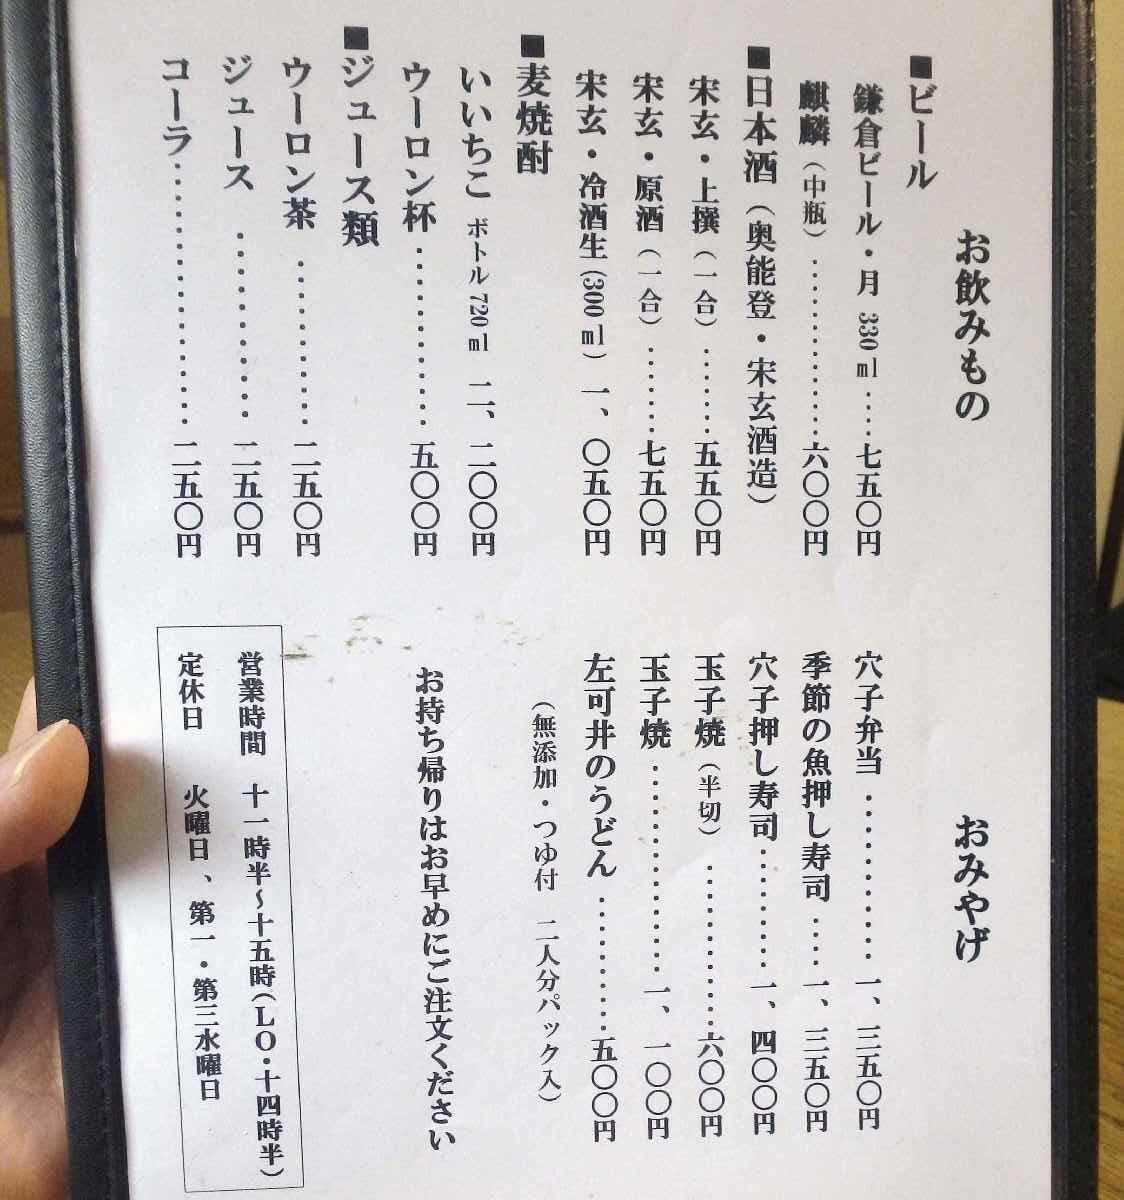 お飲みもの
■ビール
鎌倉ビール・月 330ml ‥‥七五〇円
麒麟（中瓶）‥‥‥‥‥‥六〇〇円
■日本酒（奥能登・宋玄酒造）
宋玄・上撰（一合）‥‥‥五五〇円
宋玄・原酒（一合）‥‥‥七五〇円
宋玄・冷酒生(300ml) 一、〇五〇円
■麦焼酎
いいちこ ボトル720ml 二、二〇〇円
ウーロン杯‥‥‥‥‥‥五〇〇円
■ジュース類
ウーロン茶‥‥‥‥‥二五〇円
ジュース‥‥‥‥‥‥二五〇円
コーラ‥‥‥‥‥‥‥‥二五〇円
おみやげ
穴子弁当‥‥‥‥‥一、三五〇円
季節の魚押し寿司‥‥一、三五〇円
穴子押し寿司‥‥‥‥一、四〇〇円
玉子焼（半切）‥‥‥‥‥六〇〇円
玉子焼‥‥‥‥‥‥‥一、一〇〇円
左可井のうどん‥‥‥‥五〇〇円
（無添加・つゆ付 二人分パック入）
お持ち帰りはお早めにご注文ください
営業時間 十一時半～十五時(LO・十四時半)
定休日 火曜日、第一・第三水曜日